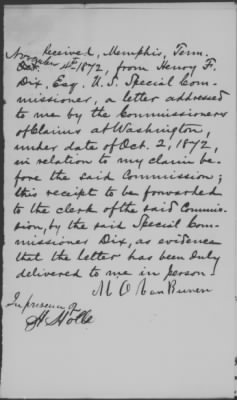 Received, Memphis, Tenn.
November
Oct. 4th 1872, from Henry F.
Dix, Esq. U. S. Special Com-
missioner, a letter addressed
to me by the Commissioners
of Claims at Washington,
under date of Oct. 2, 1872,
in relation to my claim be-
fore the said Commission;
this receipt to be forwarded
to the clerk of the said Commis-
sion, by the said Special Com-
missioner Dix, as evidence
that the letter has been duly
delivered to me in person.
M O Van Buren
In presence of
H. Holle